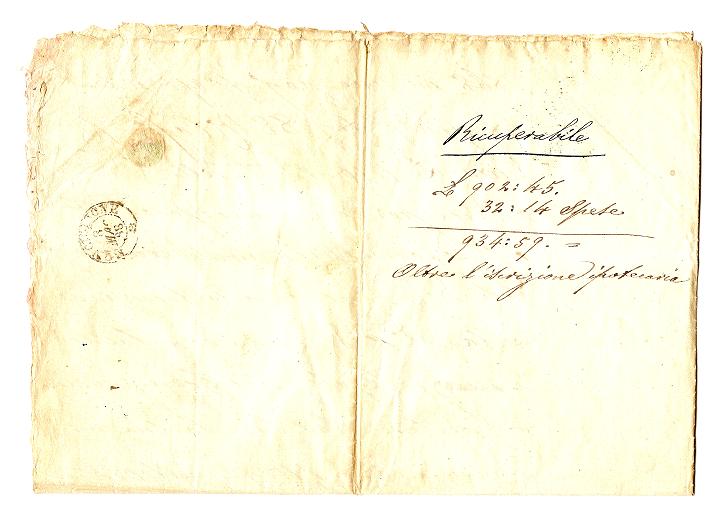 Ricuperabile
£ 902:45.
32:14 Spese
934:59. =
Oltre l'iscrizione ipotecaria